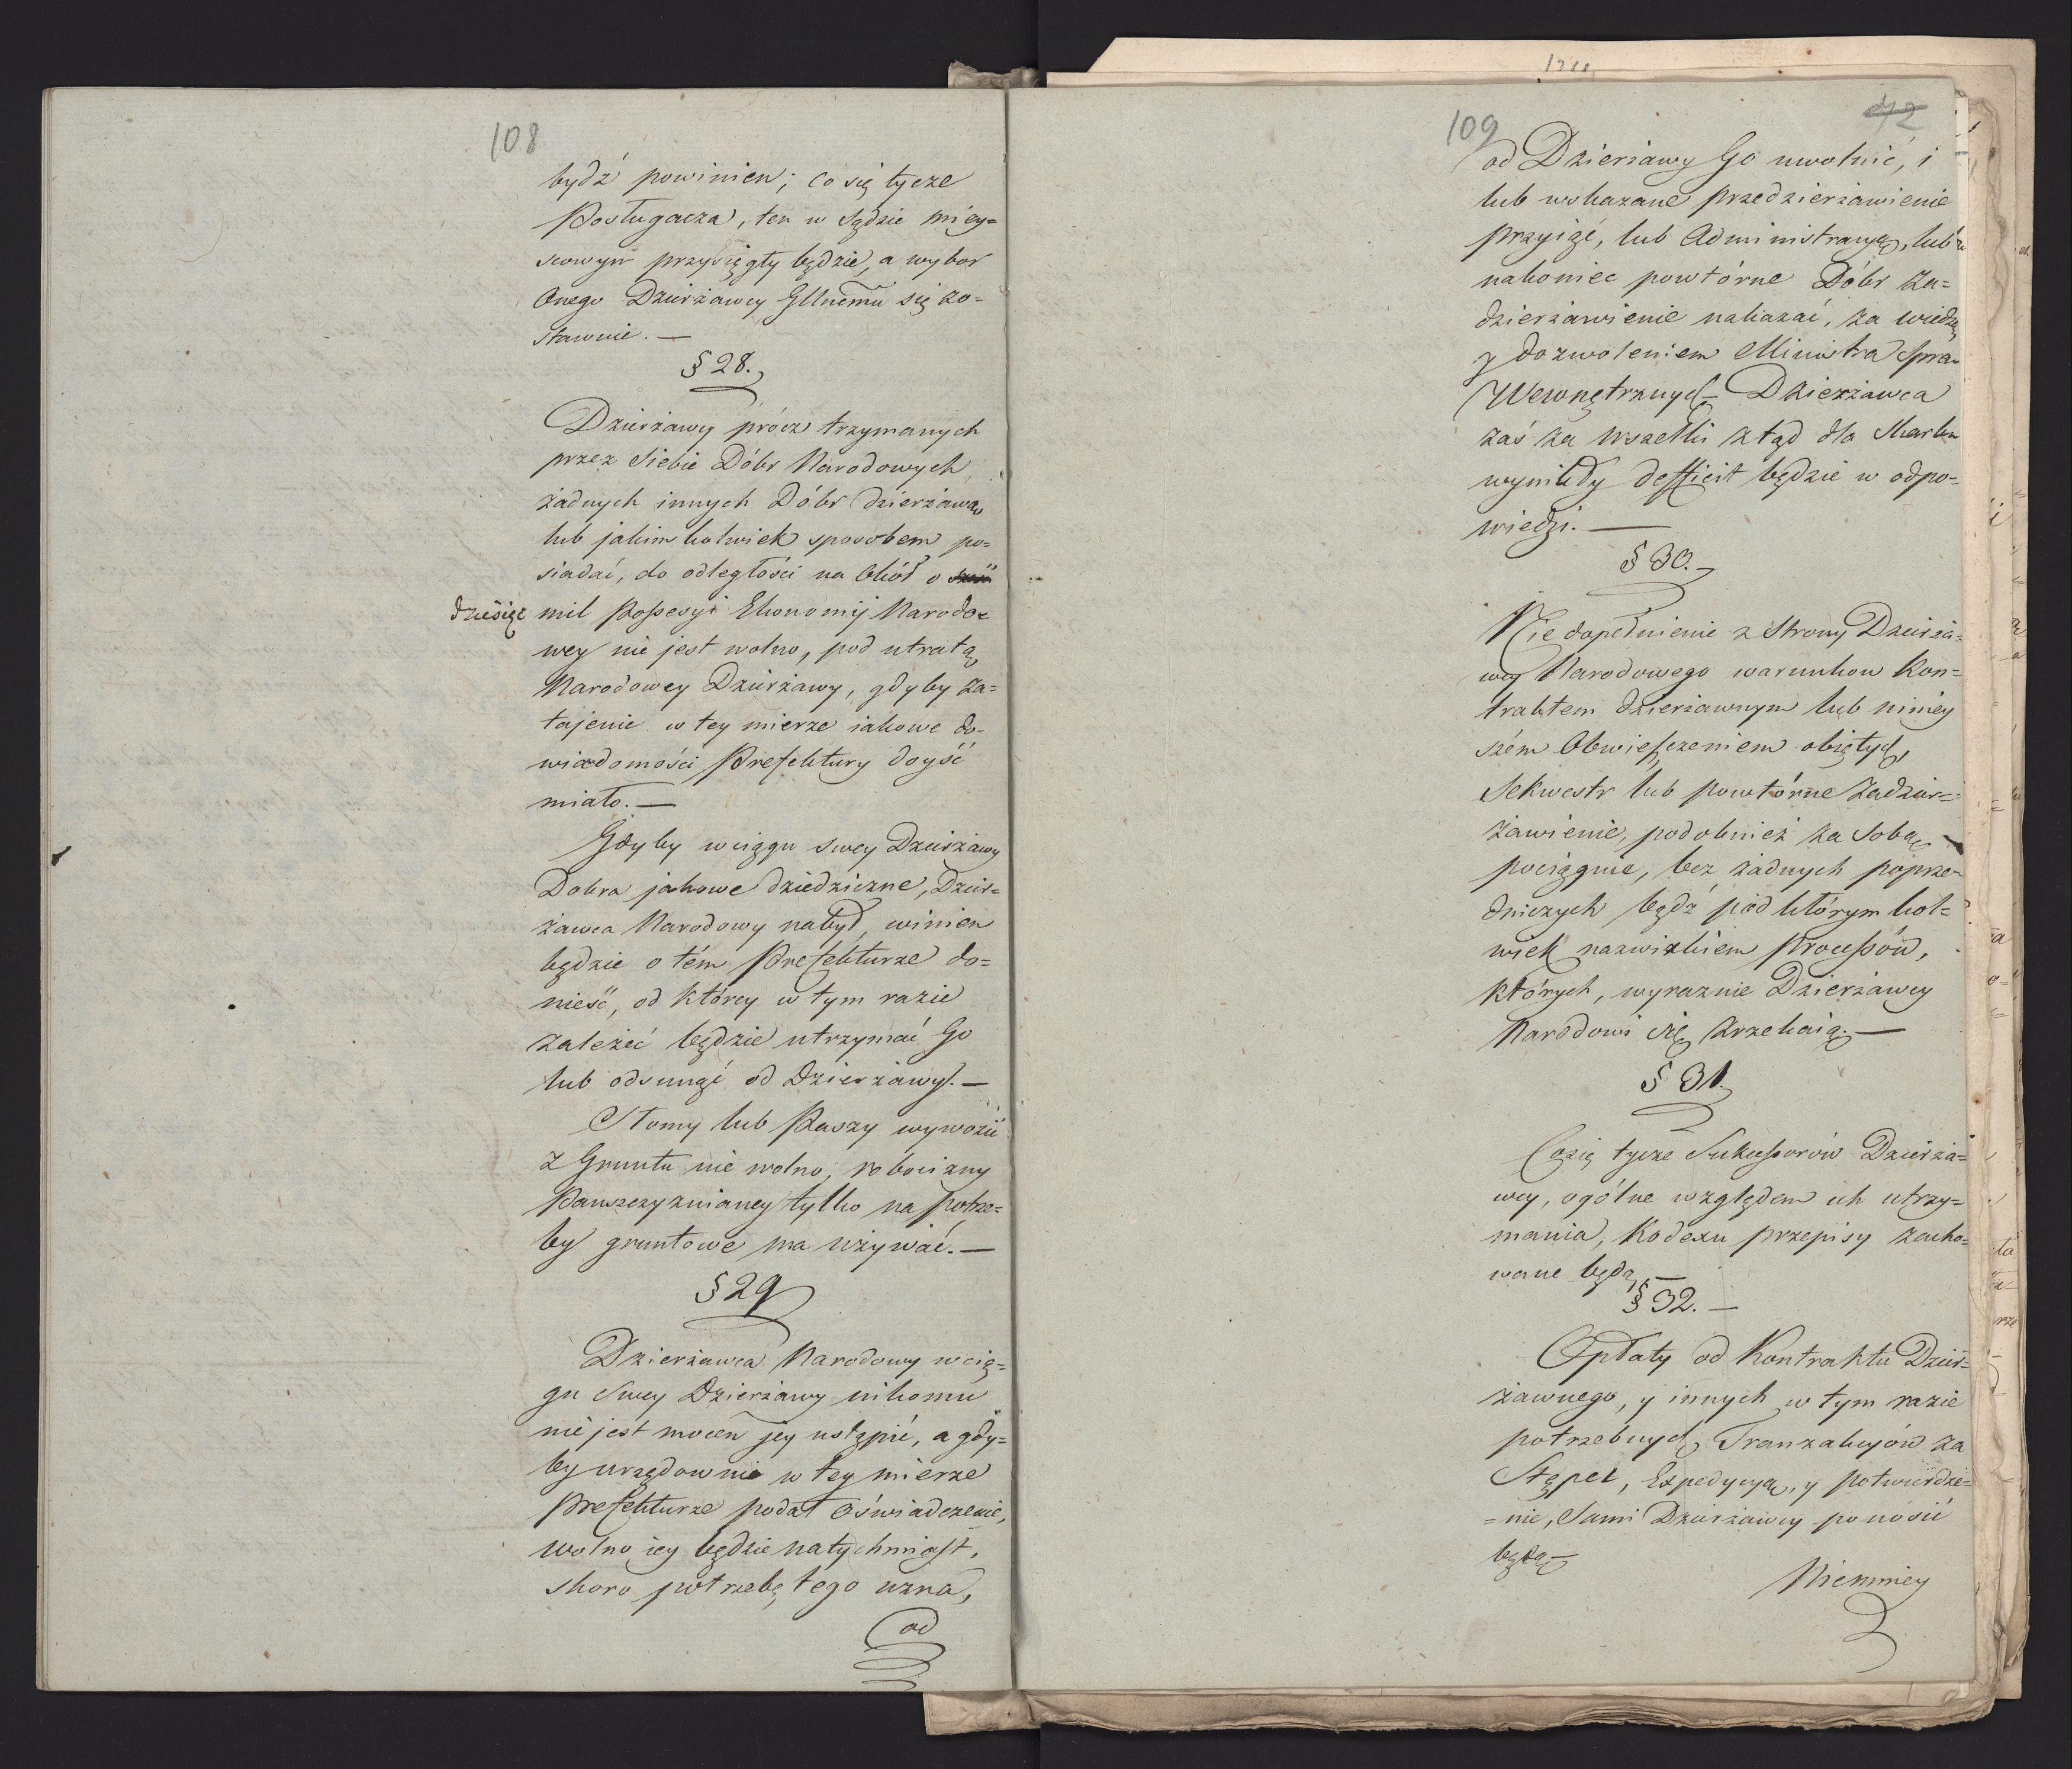 108
bydź powinien; co się tycze
Posługacza, ten w Sądzie miey=
scowym przysięgły będzie, a wybor
Onego Dzierżawcy Gllnemu się zo=
stawuie. —
§ 28.
Dzierżawcy prócz trzymanych
przez Siebie Dóbr Narodowych
żadnych innych Dóbr dzierżawą
lub jakim kolwiek sposobem po=
siadać, do odległości na Okół o
dziesięć mil Possesyi Ekonomij Narodo=
wey nie jest wolno, pod utratą
Narodowey Dzierżawy, gdyby za=
tajenie w tey mierze iakowe do
wiadomości Prefektury doyść
miało. —
Gdyby w ciągu swey Dzierżawy
Dobra jakowe dziedziczne, Dzier=
żawca Narodowy nabył, winien
będzie o tém Prefekturze do=
nieść, od którey w tym razie
zależeć będzie utrzymać Go
lub odsunąć od Dzierżawy. —
Słomy lub Paszy wywozić
z Gruntu nie wolno, robocizny
Panszczyznianey tylko na potrze=
by gruntowe ma używać. —
§ 29
Dzierżawca Narodowy w cią=
gu Swey Dzierżawy nikomu
nie jest mocen jey ustąpić, a gdy=
by urzędownie w tey mierze
Prefekturze podał oświadczenie,
wolno iey będzie natychmiast,
skoro potrzebę tego uzna,
od
109
42
od Dzierżawy Go uwolnić, i
lub wskazane przedzierżawienie
przyiąć, lub Administracyą, lub
nakoniec powtórne Dóbr Za=
dzierżawienie nakazać, za wiedzą
y dozwoleniem Ministra Spraw
Wewnętrznych — Dzierżawca
zaś za wszelki ztąd dla Skarbu
wynikły defficit będzie w odpo=
wiedzi. —
§ 30. —
Niedopełnienie z Strony Dzierża=
wcy Narodowego warunkow Kon=
traktem dzierżawnym lub niniey
szém Obwieszczeniem obiętych,
Sekwestr lub powtórne Zadzier=
żawienie, podobnież za Sobą
pociągnie, bez żadnych poprze=
dniczych bądź pod którym kol=
wiek nazwiskiem Processów,
których, wyraznie Dzierżawcy
Narodowi się zrzekaią. —
§ 31.
Co się tycze Sukcessorów Dzierża=
wcy, ogólne względem ich utrzy=
mania, Kodexu przepisy zacho=
wane będą. —
§ 32. —
Opłaty od Kontraktu Dzier=
żawnego, y innych w tym razie
potrzebnych Tranzakcyów za
Stępel, Expedycyą, y potwierdze=
=nie, Sami Dzierżawcy ponosić
będą —
Niemniey